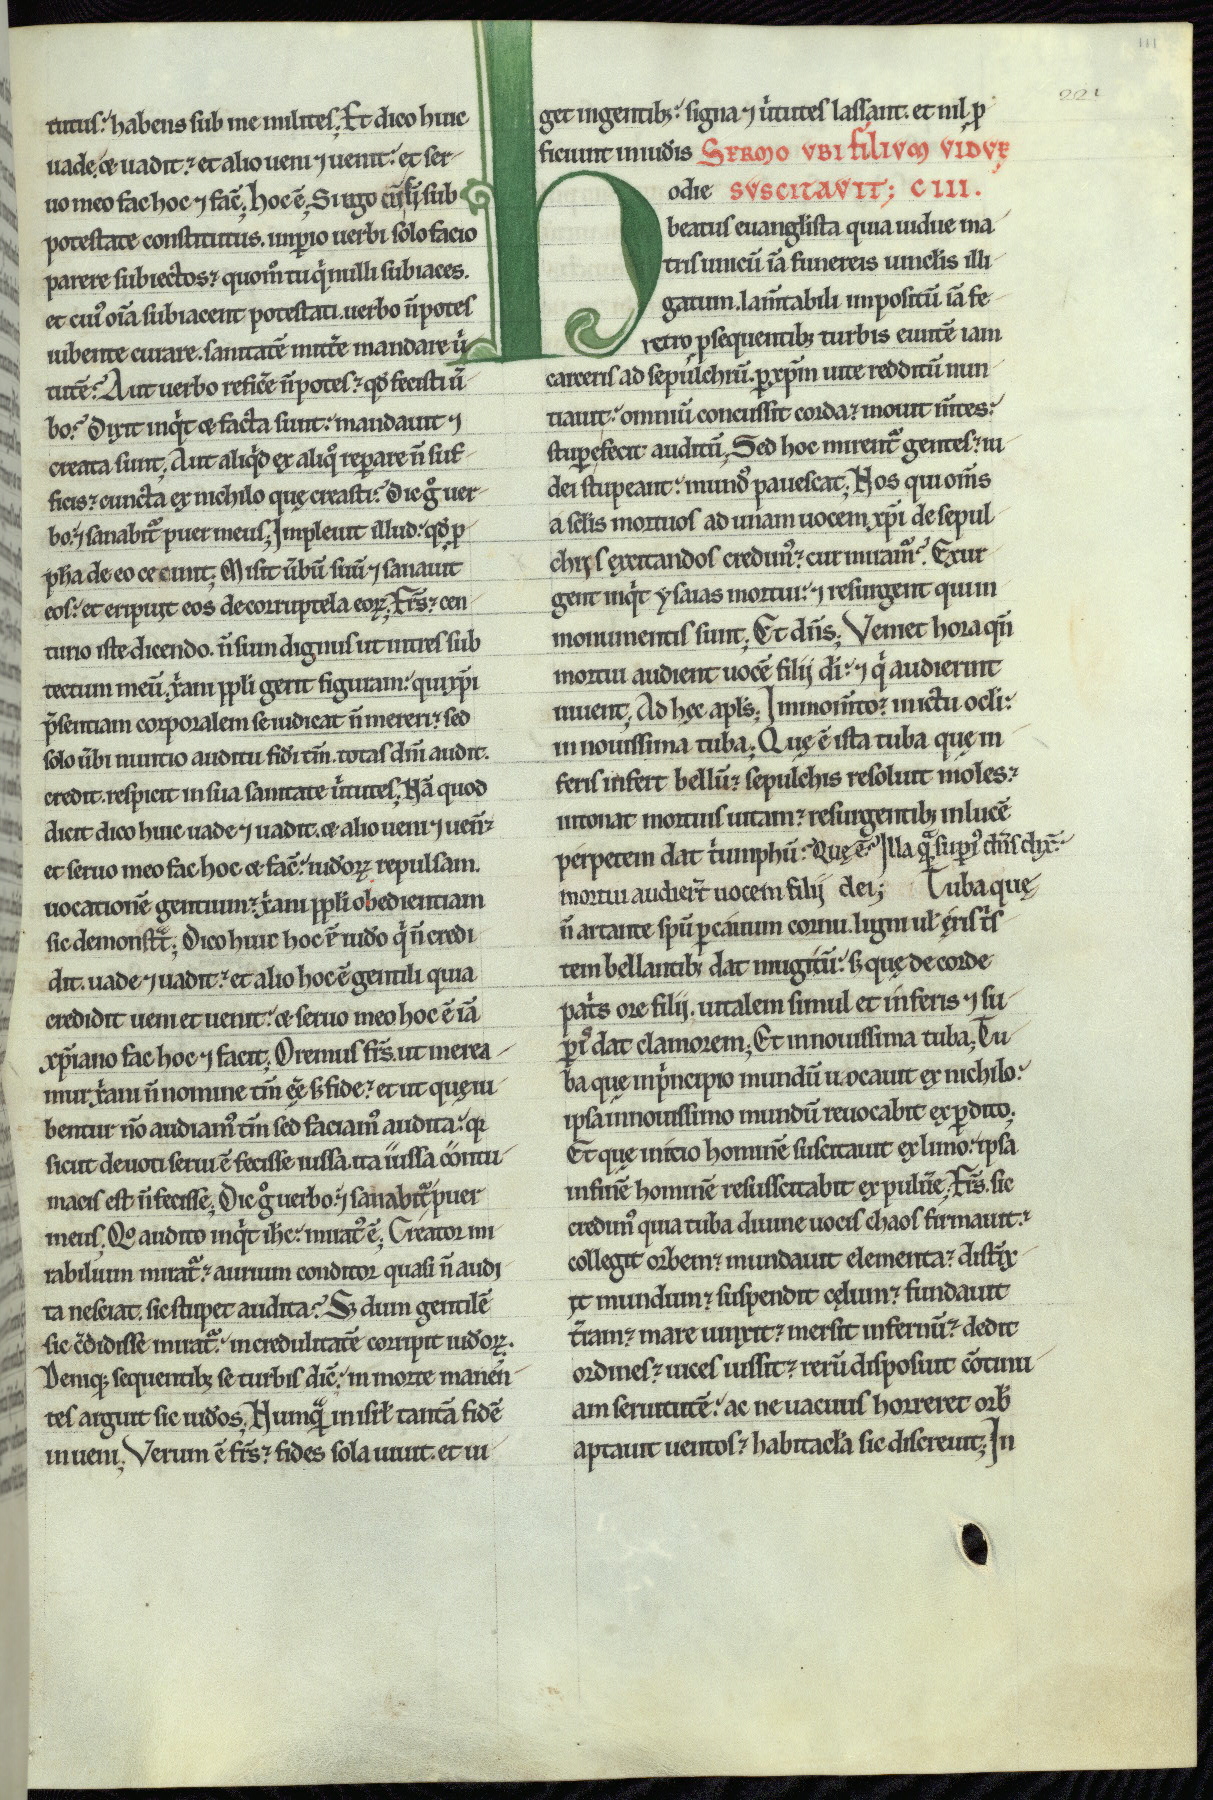 111
221
tutus: habens sub me milites; Et dico huic
uade. & uadit: et alio ueni ⁊ uenit: et ser-
uo meo fac hoc ⁊ fac̄; hoc ē; Si ego cū sī sub
potestate constitutus. imꝑio uerbi solo facio
parere subiectos: quom̄ tu q̇ nulli subiaces.
et cui᷒ om̄ia subiacent potestati. uerbo n̄ potes
iubente curare. sanitatē mittr̄e mandare ur̄
tutē: Aut uerbo reficr̄e n̄ potes: qd̄ fecisti ū
bo: Dixit inq̇t & facta sunt: mandauit ⁊
creata sunt; Aut aliq̇d ex aliq̊ reparare n̄ suf
ficis: cuncta ex nichilo quę creasti: Dic g̊ uer-
bo: ⁊ sanabit᷑ puer meus; Impleuit illud: qd̄ ꝓ
pha de eo cecinit; Misit ūbū suū ⁊ sanauit
eos: et eripuit eos de corruptela eoꝝ; Fr̄s: cen
turio iste dicendo. n̄ sum dignus ut intres sub
tectum meū. xr̄ani ppl̄i gerit figuram: qui xp̄i
p̄sentiam corporalem se iudicat n̄ mereri: sed
solo ūbi nuntio auditu fidi tm̄. totas dm̄ audit.
credit. respicit in sua sanitate ūtutes; Nā quod
dicit dico huic uade ⁊ uadit. & alio ueni ⁊ uen̄:
et seruo meo fac hoc & fac̄: iudoꝝ repulsam.
uocationē gentium: xr̄ani ppl̄i obedientiam
sic demonst̄t; Dico huic hoc ē iudo q̇ n̄ credi
dit. uade ⁊ uadit: et alio hoc ē gentili quia
credidit ueni et uenit: & seruo meo hoc ē iā
xp̄iano fac hoc ⁊ facit; Oremus fr̄s. ut merea-
mur xr̄ani n̄ nomine tm̄ ee̅ sꝫ fide: et ut quę iu-
bentur n̄o audiam᷒ tm̄ sed faciam᷒ audita: qꝛ
sicut deuoti serui ē fecisse iussa. ita iussa contu
macis est n̄ fecisse; Dic g̊ uerbo: ⁊ sanabit᷑ puer
meus; Qo audito inq̇t ih̄c: mirat᷒ ē; Creator mi
rabilium mirat᷑: aurium conditor quasi n̄ audi
ta nesciat. sic stupet audita: Sꝫ dum gentilē
sic c̄didisse mirat᷑: incredulitatē corripit iudoꝝ.
Deniqꝫ sequentibꝫ se turbis dic̄: in morte manen̄-
tes arguit sic iudos; Numq̄ in isrl̄ tantā fidē
inueni; Verum ē fr̄s: fides sola uiuit. et ui-
get in gentibꝫ: signa ⁊ ūtutes lassant. et nil ꝓ
ficiunt in iudis SERMO VBI filiVM VIDVE
SVSCITAVIT; C III.
hodie
beatus euanglista quia uidue ma
tris unicū iā funereis uinclis illi
gatum. lam̄tabili impositū iā fe-
retro ꝓsequentibꝫ turbis euntē iam
carceris ad sepulchrū. ꝑ xp̄m uite redditū nun
tiauit: omniū concussit corda: mouit m̄tes:
stupefecit auditū; Sed hoc mirent᷑ gentes: iu-
dei stupeant: mund᷒ pauescat; Nos qui om̄s
a seclis mortuos ad unam uocem xp̄i de sepul
chrjs excitandos credim᷒: cur miram᷑: Exur
gent inq̇t ysaias mortui: ⁊ resurgent qui in
monumentis sunt; Et dn̄s; Veniet hora qn̄
mortui audient uocē filij di̅: ⁊ q̇ audierint
uiuent; Ad hęc apl̄s; In mom̄to: in ictu ocli:
in nouissima tuba; Quę ē ista tuba quę in
feris infert bellū: sepulchis resoluit moles:
intonat mortuis uitam: resurgentibꝫ in lucē
perpetem dat triumphū: Quę ē: Illa q̄ supi᷒ dn̄s dix̄:
mortui audiert̄ uocem filij dei; Tuba quę
n̄ artante spū ꝑ cauum cornu. ligni ul̄ ęris tris
tem bellantibꝫ dat mugitū: sꝫ quę de corde
patris ore filij. uitalem simul et inferis ⁊ su-
ꝑi᷒ dat clamorem; Et in nouissima tuba; Tu-
ba quę in ṗncipio mundū uocauit ex nichilo:
ipsa in nouissimo mundū reuocabit ex ꝑdito;
Et quę inicio hominē suscitauit ex limo: ipsa
in finē hominē resusscitabit ex puluē; Fr̄s. sic
credim᷒ quia tuba diuine uocis chaos firmauit:
collegit orbem: mundauit elementa: distīx-
it mundum: suspendit cęlum: fundauit
t̄ram: mare uinxit: mersit infernū: dedit
ordines: uices iussit: rerū disposuit cōtinu-
am seruitutē: ac ne uacuus horreret orb᷒
aptauit uentos: habitacl̄a sic discreuit; In